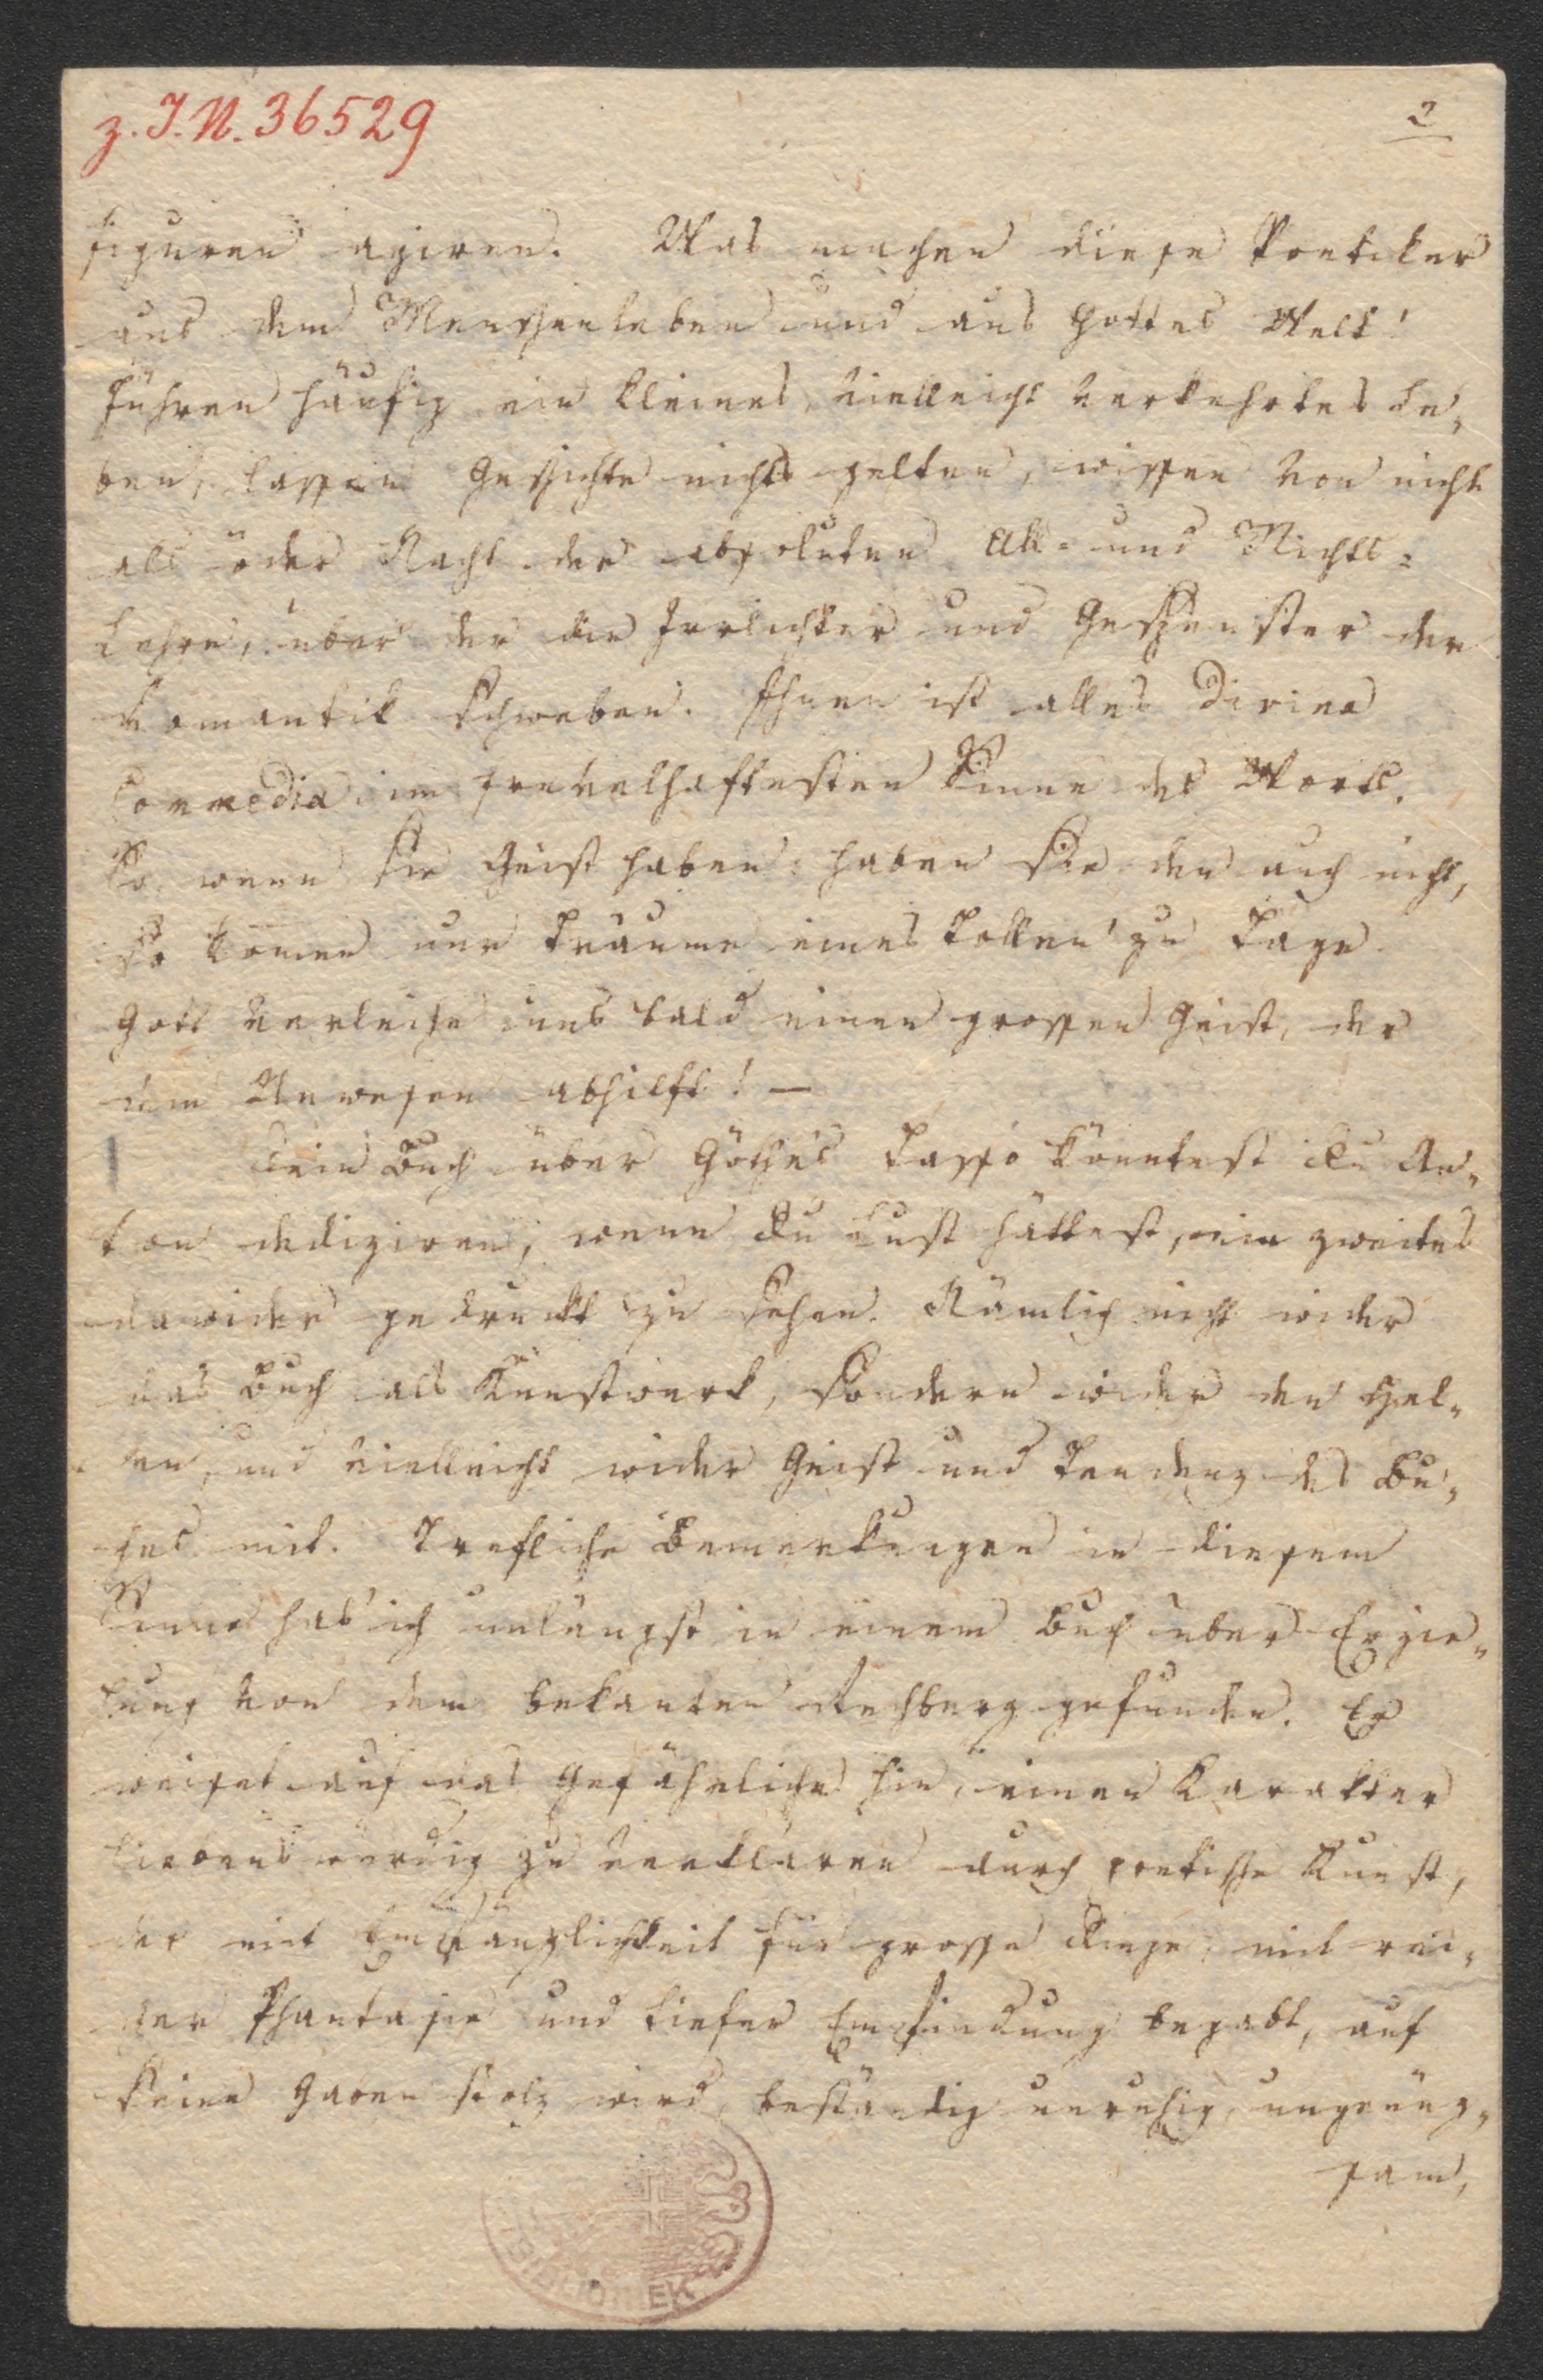 z. I. N. 36529
2
figuren agiren. Was machen diese Poetiker
aus dem Menschenleben und aus Gottes Welt!
Führen häufig ein kleines, vielleicht verkehrtes Le„
ben, lassen Geschichte nichts gelten, wissen von nichts
als öder Nacht der absoluten All- und Nichts=
Lehre, über der die Irrlichter und Gespenster der
Romantik schweben. Ihnen ist alles Divina
Commedia im frevelhaftesten Sinne des Worts.
So, wenn sie Geist haben: haben sie den auch nicht,
So komen nur Träume eines Tollen zu Tage.
Gott verleihe uns bald einen grossen Geist, der
dem Unwesen abhilft! —
Dein Buch über Göthe's Tasso könntest du An„
ton dediziren, wenn du Lust hättest, ein zweites
dawider gedruckt zu sehen. Nämlich nicht wider
das Buch als Kunstwerk, sondern wider den Hel„
den, und vielleicht wider Geist und Tendenz des Bu„
ches mit. Trefliche Bemerkungen in diesem
Sinne hab' ich unlängst in einem Buch über Erzie„
hung von dem bekanten Rehberg gefunden. Er
weiset auf das Gefährliche hin, einen Karakter
liebenswürdig zu verklären durch poetische Kunst,
der mit Empfänglichkeit für grosse Dinge, mit rei„
cher Phantasie und tiefer Empfindung begabt, auf
seine Gaben stolz wird, beständig unruhig, ungenüg„
sam,
BIBLIOTHEK